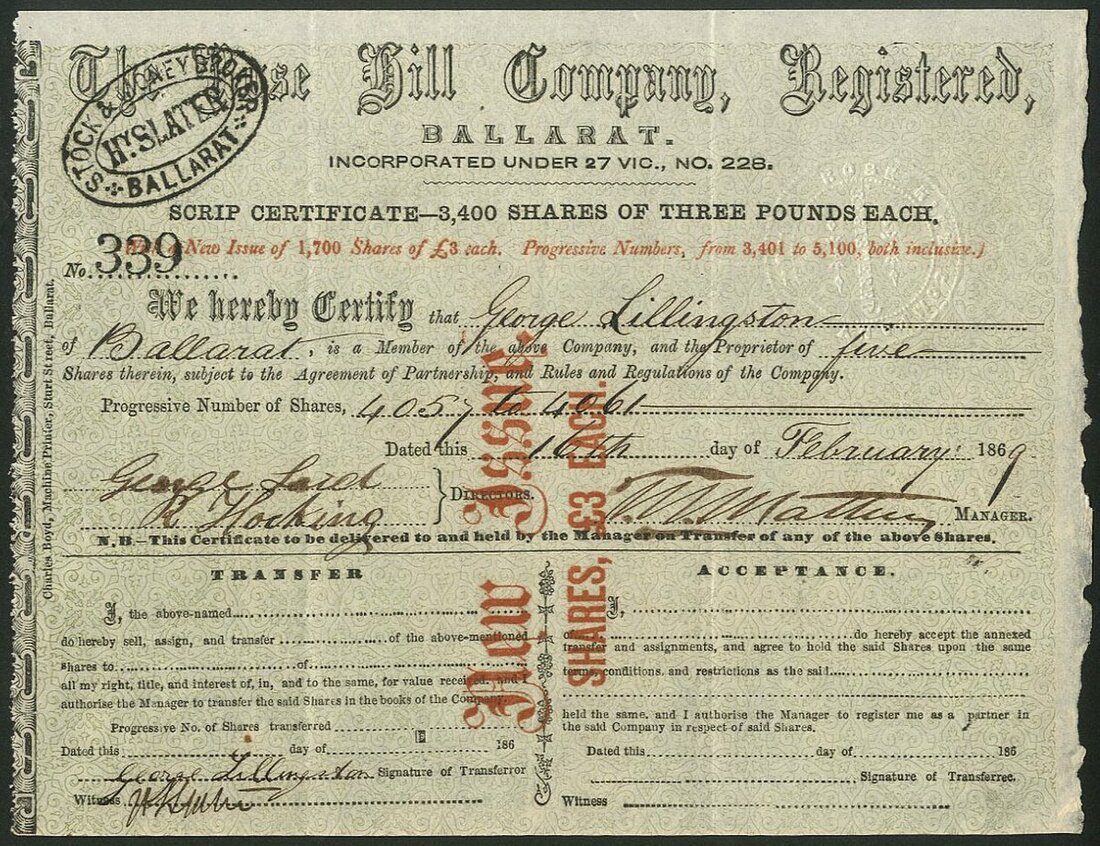 The Rose Hill Company, Registered,
STOCK & MONEY BROKER
Hy. SLATER
BALLARAT
BALLARAT.
INCORPORATED UNDER 27 VIC., NO. 228.
SCRIP CERTIFICATE—3,400 SHARES OF THREE POUNDS EACH.
a New Issue of 1,700 Shares of £3 each. Progressive Numbers, from 3,401 to 5,100, both inclusive.)
No. 339
We hereby Certify that George Lillingston
of Ballarat, is a Member of the above Company, and the Proprietor of five
Shares therein, subject to the Agreement of Partnership, and Rules and Regulations of the Company.
Progressive Number of Shares, 4057 to 4061
Dated this 16th day of February 1869
George
R Hocking
} DIRECTORS.
MANAGER.
N.B.—This Certificate to be delivered to and held by the Manager on Transfer of any of the above Shares.
New Issue.
SHARES, £3 EACH.
Charles Boyd, Machine Printer, Sturt Street, Ballarat.
TRANSFER
I, the above-named
do hereby sell, assign, and transfer of the above-mentioned
shares to of
all my right, title, and interest of, in, and to the same, for value received, and I
authorise the Manager to transfer the said Shares in the books of the Company.
Progressive No. of Shares transferred
Dated this day of 186
George Lillingston Signature of Transferror
Witness
ACCEPTANCE.
I,
of do hereby accept the annexed
transfer and assignments, and agree to hold the said Shares upon the same
terms, conditions, and restrictions as the said
held the same, and I authorise the Manager to register me as a partner in
the said Company in respect of said Shares.
Dated this day of 186
Signature of Transferree.
Witness